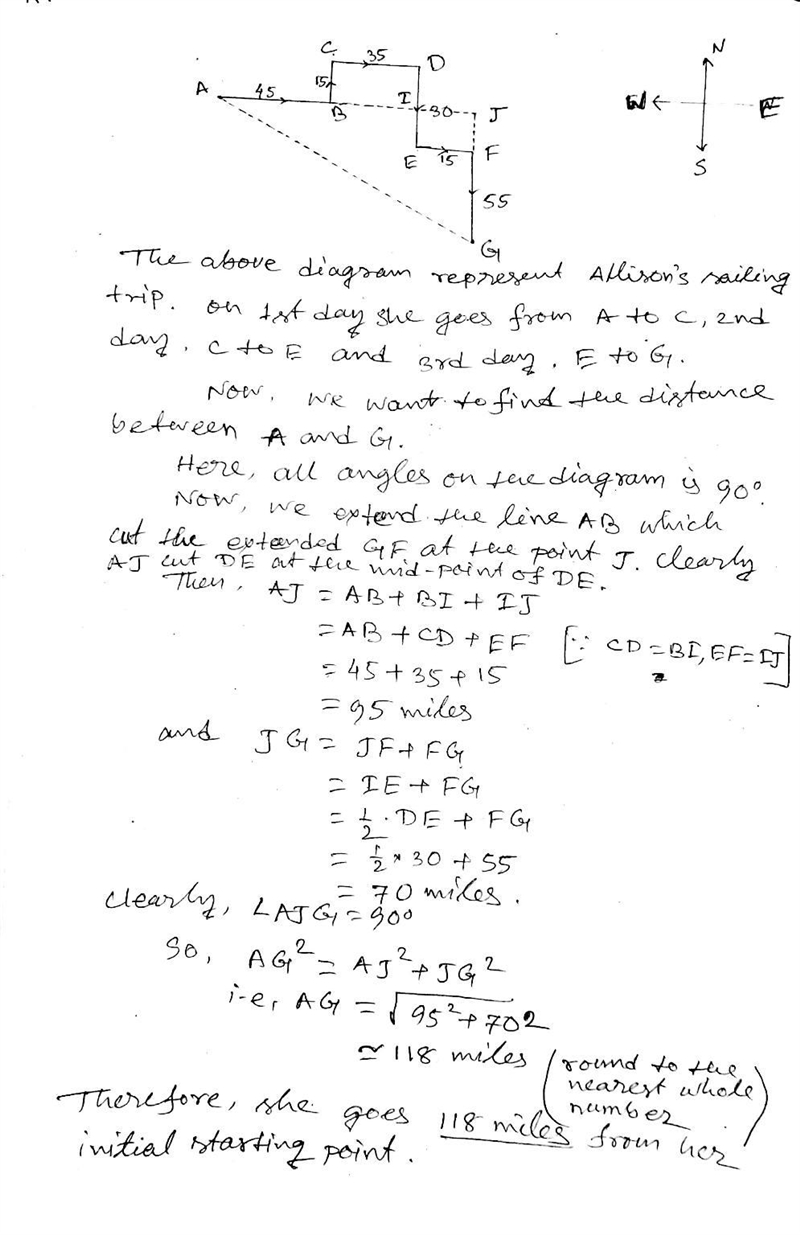 C 35 D
N
A 45 15 I 30 J
B
W E
E 15 F
S
55
G
The above diagram represent Allison's sailing
trip. on 1st day she goes from A to C, 2nd
day, C to E and 3rd day, E to G.
Now, we want to find the distance
between A and G.
Here, all angles on the diagram is 90°.
Now, we extend the line AB which
cut the extended GF at the point J. clearly
AJ cut DE at the mid-point of DE.
Then, AJ = AB + BI + IJ
= AB + CD + EF [∵ CD = BI, EF = IJ]
= 45 + 35 + 15
= 95 miles
and JG = JF + FG
= IE + FG
= 1/2 · DE + FG
= 1/2 × 30 + 55
= 70 miles.
clearly, ∠AJG = 90°
So, AG² = AJ² + JG²
i.e, AG = √95² + 70²
≃ 118 miles (round to the
nearest whole
number)
Therefore, she goes 118 miles from her
initial starting point.